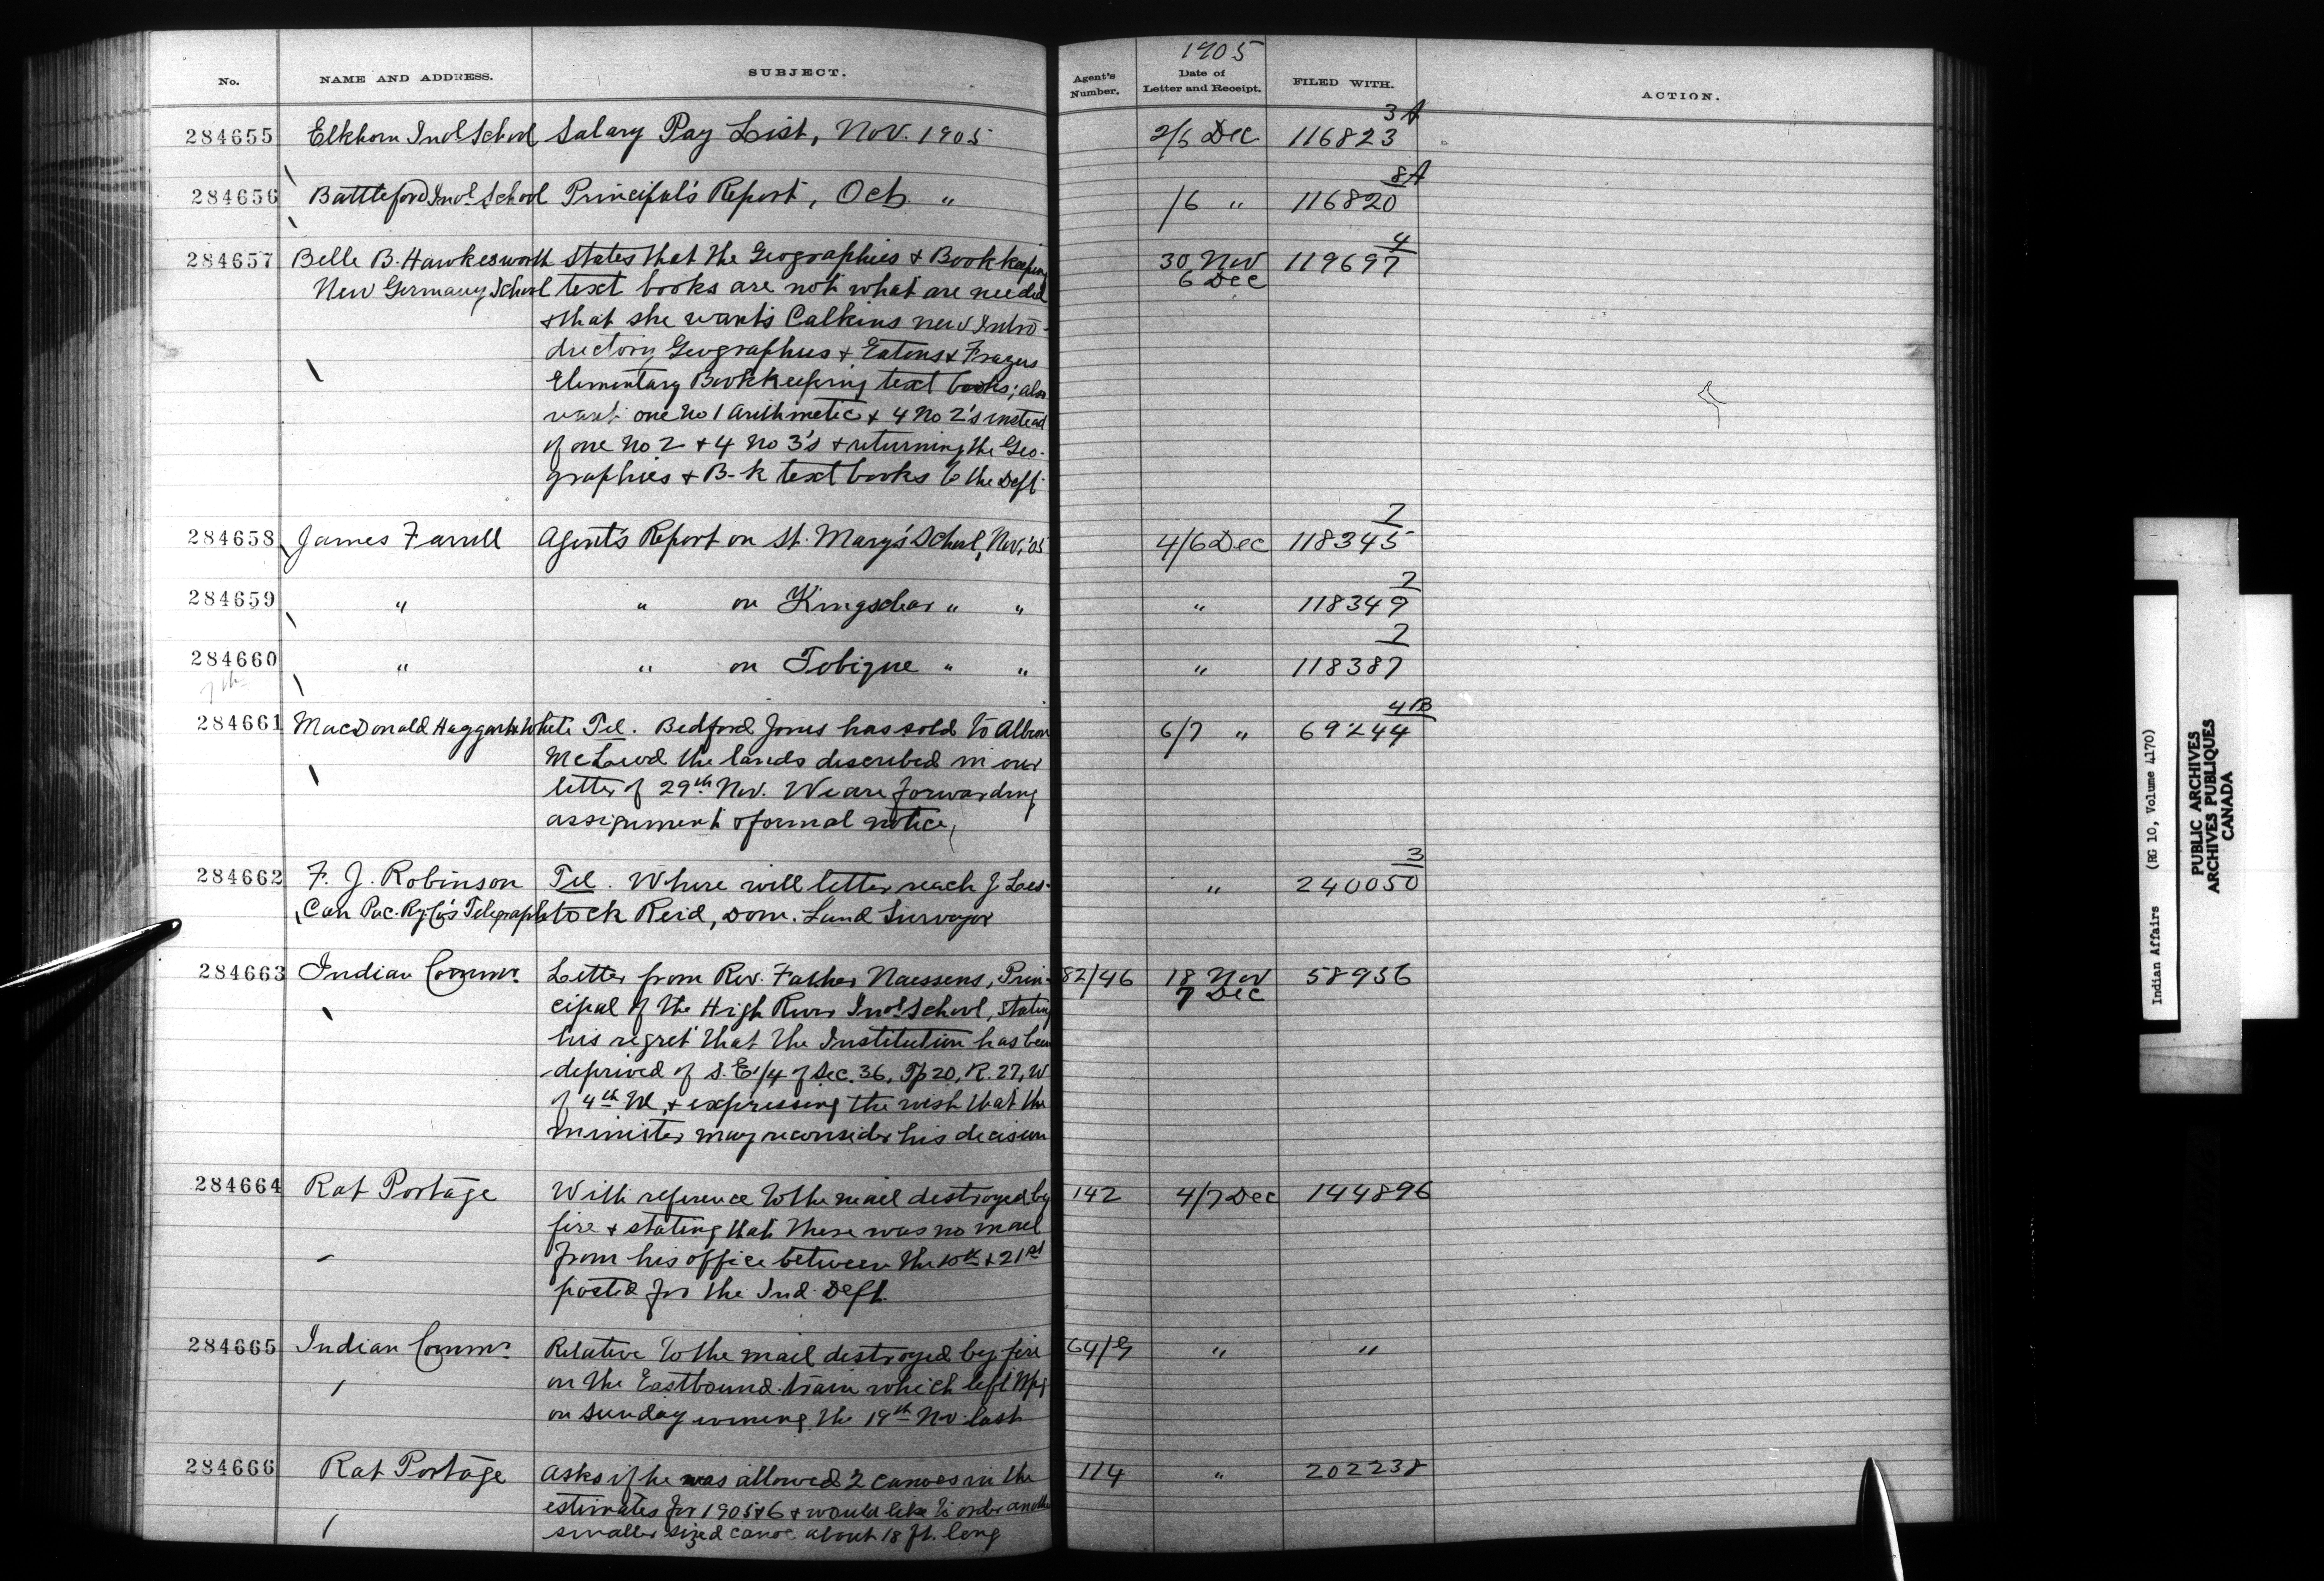 1905
No. NAME AND ADDRESS. SUBJECT. Agent's Number. Date of Letter and Receipt. FILED WITH. ACTION.
3A
284655 Elkhorn Indl School Salary Pay List, Nov. 1905 2/6 Dec 116823
8A
284656 Battleford Indl School Principal's Report, Oct. " /6 " 116820
4
284657 Belle B. Hawkesworth states that the Geographies & Bookkeeping 30 Nov 119697
New Germany School text books are not what are needed 6 Dec
& that she wants Calkins new Intro-
ductory Geographies & Eatons & Frazers
Elementary Bookkeeping text books; also
want one No 1 Arithmetic & 4 No 2's instead
of one No 2 & 4 No 3's & returning the Geo-
graphies & B-k text books to the Dept
7
284658 James Farrell Agent's Report on St. Mary's School, Nov, '05 4/6 Dec 118345
7
284659 " " on Kingsclear " " " 118349
7
284660 " " on Tobique " " " 118387
7th
4B
284661 MacDonald Haggart & White Tel. Bedford Jones has sold to Albion 6/7 " 69244
McLeod the lands described in our
letter of 29th Nov. We are forwarding
assignment & formal notice,
3
284662 F. J. Robinson Tel. Where will letter reach J. Les- " 240050
Can Pac. Ry Co's Telegraph tock Reid, Dom. Land Surveyor
284663 Indian Commr. Letter from Rev. Father Naessens, Prin- 82/46 18 Nov 58936
cipal of the High River Indl School, stating 7 Dec
his regret that the Institution has been
deprived of S. E 1/4 of Sec. 36, Tp 20, R. 27, W
of 4th M, & expressing the wish that the
minister may reconsider his decision
284664 Rat Portage With reference to the mail destroyed by 142 4/7 Dec 144896
fire & stating that there was no mail
from his office between the & 21st
posted for the Ind. Dept.
284665 Indian Commr. Relative to the mail destroyed by fire 64/G " "
on the Eastbound train which left Wpg
on Sunday evening the 19th Nov. last
284666 Rat Portage Asks if he was allowed 2 canoes in the 114 " 202238
estimates for 1905 & 6 & would like to order another
smaller sized canoe about 18 ft. long
Indian Affairs (RG 10, Volume 4170)
PUBLIC ARCHIVES
ARCHIVES PUBLIQUES
CANADA